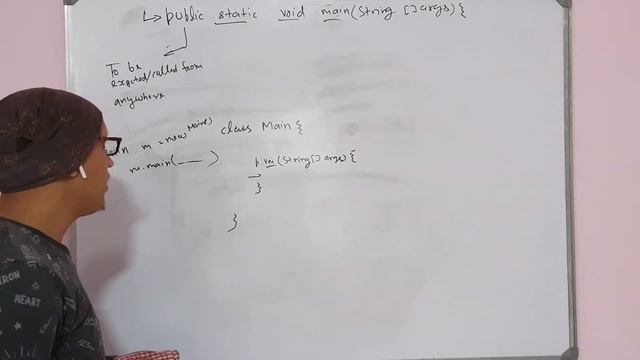 ↳ public static void main(String []args){
To be
executed/called from
anywhere
m = new Main()
m.main(___)
class Main{
p vm(String[] args){
}
}
IRON
HEART